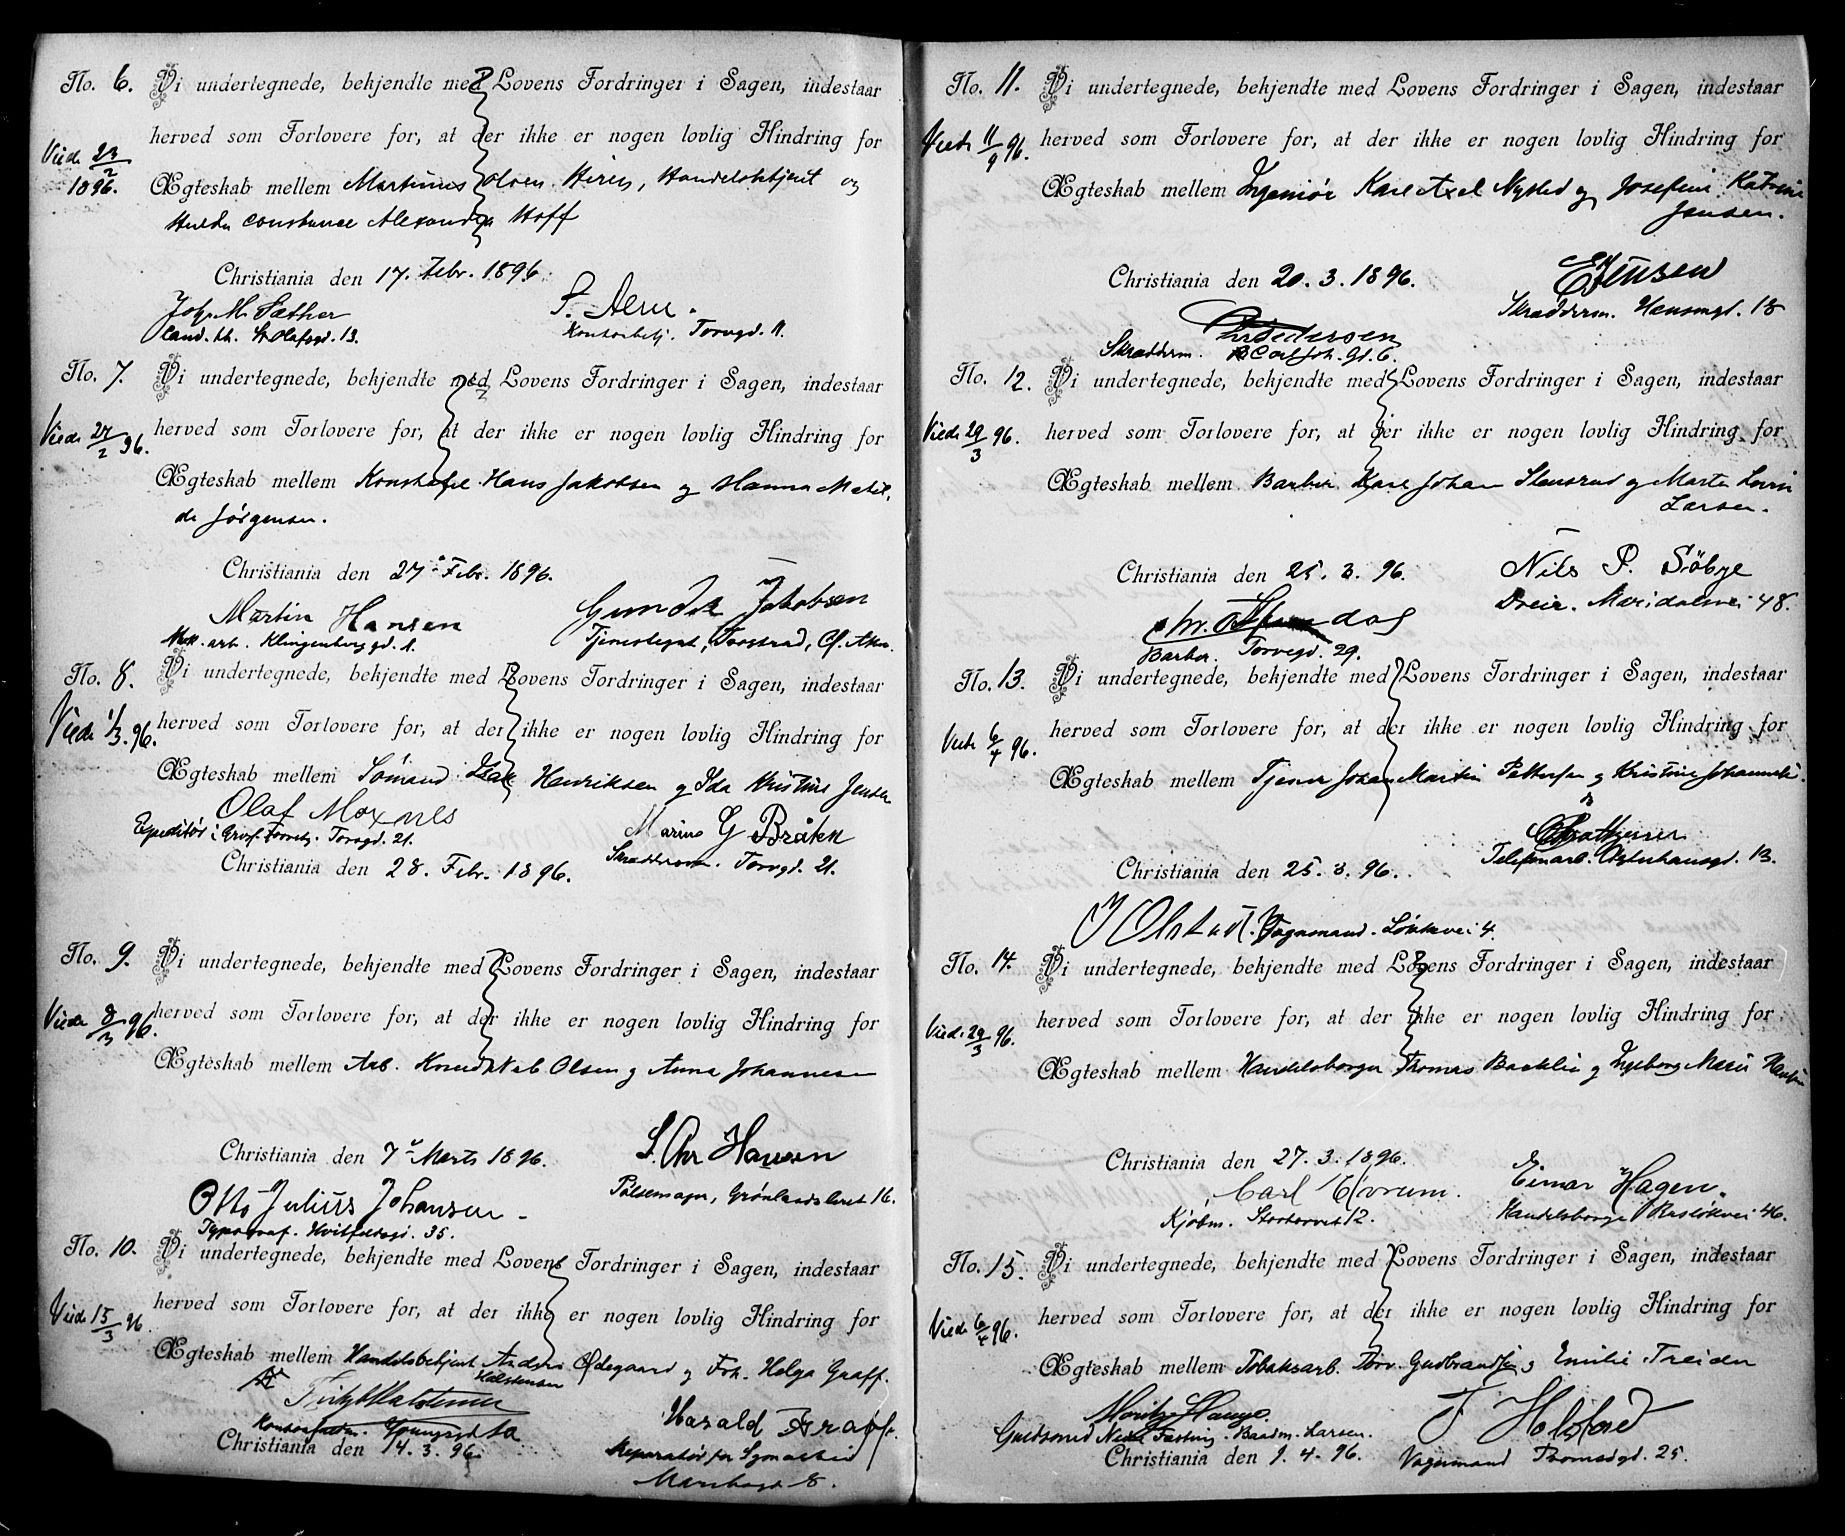 No. 6. Vi undertegnede, bekjendte med Lovens Fordringer i Sagen, indestaar
herved som Forlovere for, at der ikke er nogen lovlig Hindring for
Viede 23/2
1896.
Ægteskab mellem Martinus Olsen Hiren, Handelsbetjent og
Hulda Constance Alexandra Hoff
Christiania den 17. Febr. 1896.
Joh. M. Sæther
Cand. th. St. Olafsgd. 13.
Kontorbetj. Torvgd. 11.
No. 7. Vi undertegnede, bekjendte med Lovens Fordringer i Sagen, indestaar
Viede 27/2 96.
herved som Forlovere for, at der ikke er nogen lovlig Hindring for
Ægteskab mellem Konstabel Hans Jakobsen og Hanna Matil-
de Jørgensen.
Christiania den 27. Febr. 1896.
Martin Hansen
Mek. arb. Klingenberggd. 1.
Jakobsen
No. 8. Vi undertegnede, bekjendte med Lovens Fordringer i Sagen, indestaar
Viede 1/3. 96.
herved som Forlovere for, at der ikke er nogen lovlig Hindring for
Ægteskab mellem Sømand Isak Henriksen og Ida Kristine Jensen
Olaf Moxnes
Torvgd. 21.
Marius G Bråten
Skræddersv. Torvgd. 21.
Christiania den 28. Febr. 1896.
No. 9. Vi undertegnede, bekjendte med Lovens Fordringer i Sagen, indestaar
Viede 8/3 96.
herved som Forlovere for, at der ikke er nogen lovlig Hindring for
Ægteskab mellem Arb. Olsen og Anna Johannesen
Christiania den 7de Marts 1896.
S. Chr Hansen
Pølsemager, Grønlandsleret 16.
Otto Julius Johansen
Typograf. Hvitfeldtsgd. 35.
No. 10. Vi undertegnede, bekjendte med Lovens Fordringer i Sagen, indestaar
Viede 15/3 96.
herved som Forlovere for, at der ikke er nogen lovlig Hindring for
Ægteskab mellem Handelsbetjent Anders Ødegaard og Frk. Helga Graff.
Halstensen
Harald Graff.
Christiania den 14. 3. 96.
Reparatør for Symaskin
8.
No. 11. Vi undertegnede, bekjendte med Lovens Fordringer i Sagen, indestaar
Viede 11/9 96.
herved som Forlovere for, at der ikke er nogen lovlig Hindring for
Ægteskab mellem Ingeniør Karl Axel Nysted og Josefine Katrine
Jensen.
Christiania den 20. 3. 1896.
E Jensen
Skræddersm. Hansmgd. 18
Pedersen
Skræddersm. Carl Joh. Gd. 6.
No. 12. Vi undertegnede, bekjendte med Lovens Fordringer i Sagen, indestaar
Viede 29/3 96.
herved som Forlovere for, at der ikke er nogen lovlig Hindring for
Ægteskab mellem Barber Karl Johan Stensrud og Marta Lovise
Larsen.
Christiania den 25. 3. 96.
Nils P. Söbye
Dreier. Maridalsvei 48.
Barber. Torvegd. 29.
No. 13. Vi undertegnede, bekjendte med Lovens Fordringer i Sagen, indestaar
Viede 6/4 96.
herved som Forlovere for, at der ikke er nogen lovlig Hindring for
Ægteskab mellem Tjener Johan Martin Pettersen og Kristine Johannesen
Telefonarb. Osterhausgd. 13.
Christiania den 25. 3. 96.
J Olstad. Vognmand. Løkkevei 4.
No. 14. Vi undertegnede, bekjendte med Lovens Fordringer i Sagen, indestaar
Viede 29/3 96.
herved som Forlovere for, at der ikke er nogen lovlig Hindring for
Ægteskab mellem Handelsborger Thomas Bæklie og Ingeborg Marie Hansen
Christiania den 27. 3. 1896.
Einar Hagen.
Handelsborger 46.
Carl
Kjøbm. Stortorvet 12.
No. 15. Vi undertegnede, bekjendte med Lovens Fordringer i Sagen, indestaar
Viede 6/4 96.
herved som Forlovere for, at der ikke er nogen lovlig Hindring for
Ægteskab mellem Tobaksarb. Torv. Gudbrandsen og Emilie Treider
Moritz Hauge.
Christiania den 1. 4. 96.
Vognmand Tromsøgd. 25.